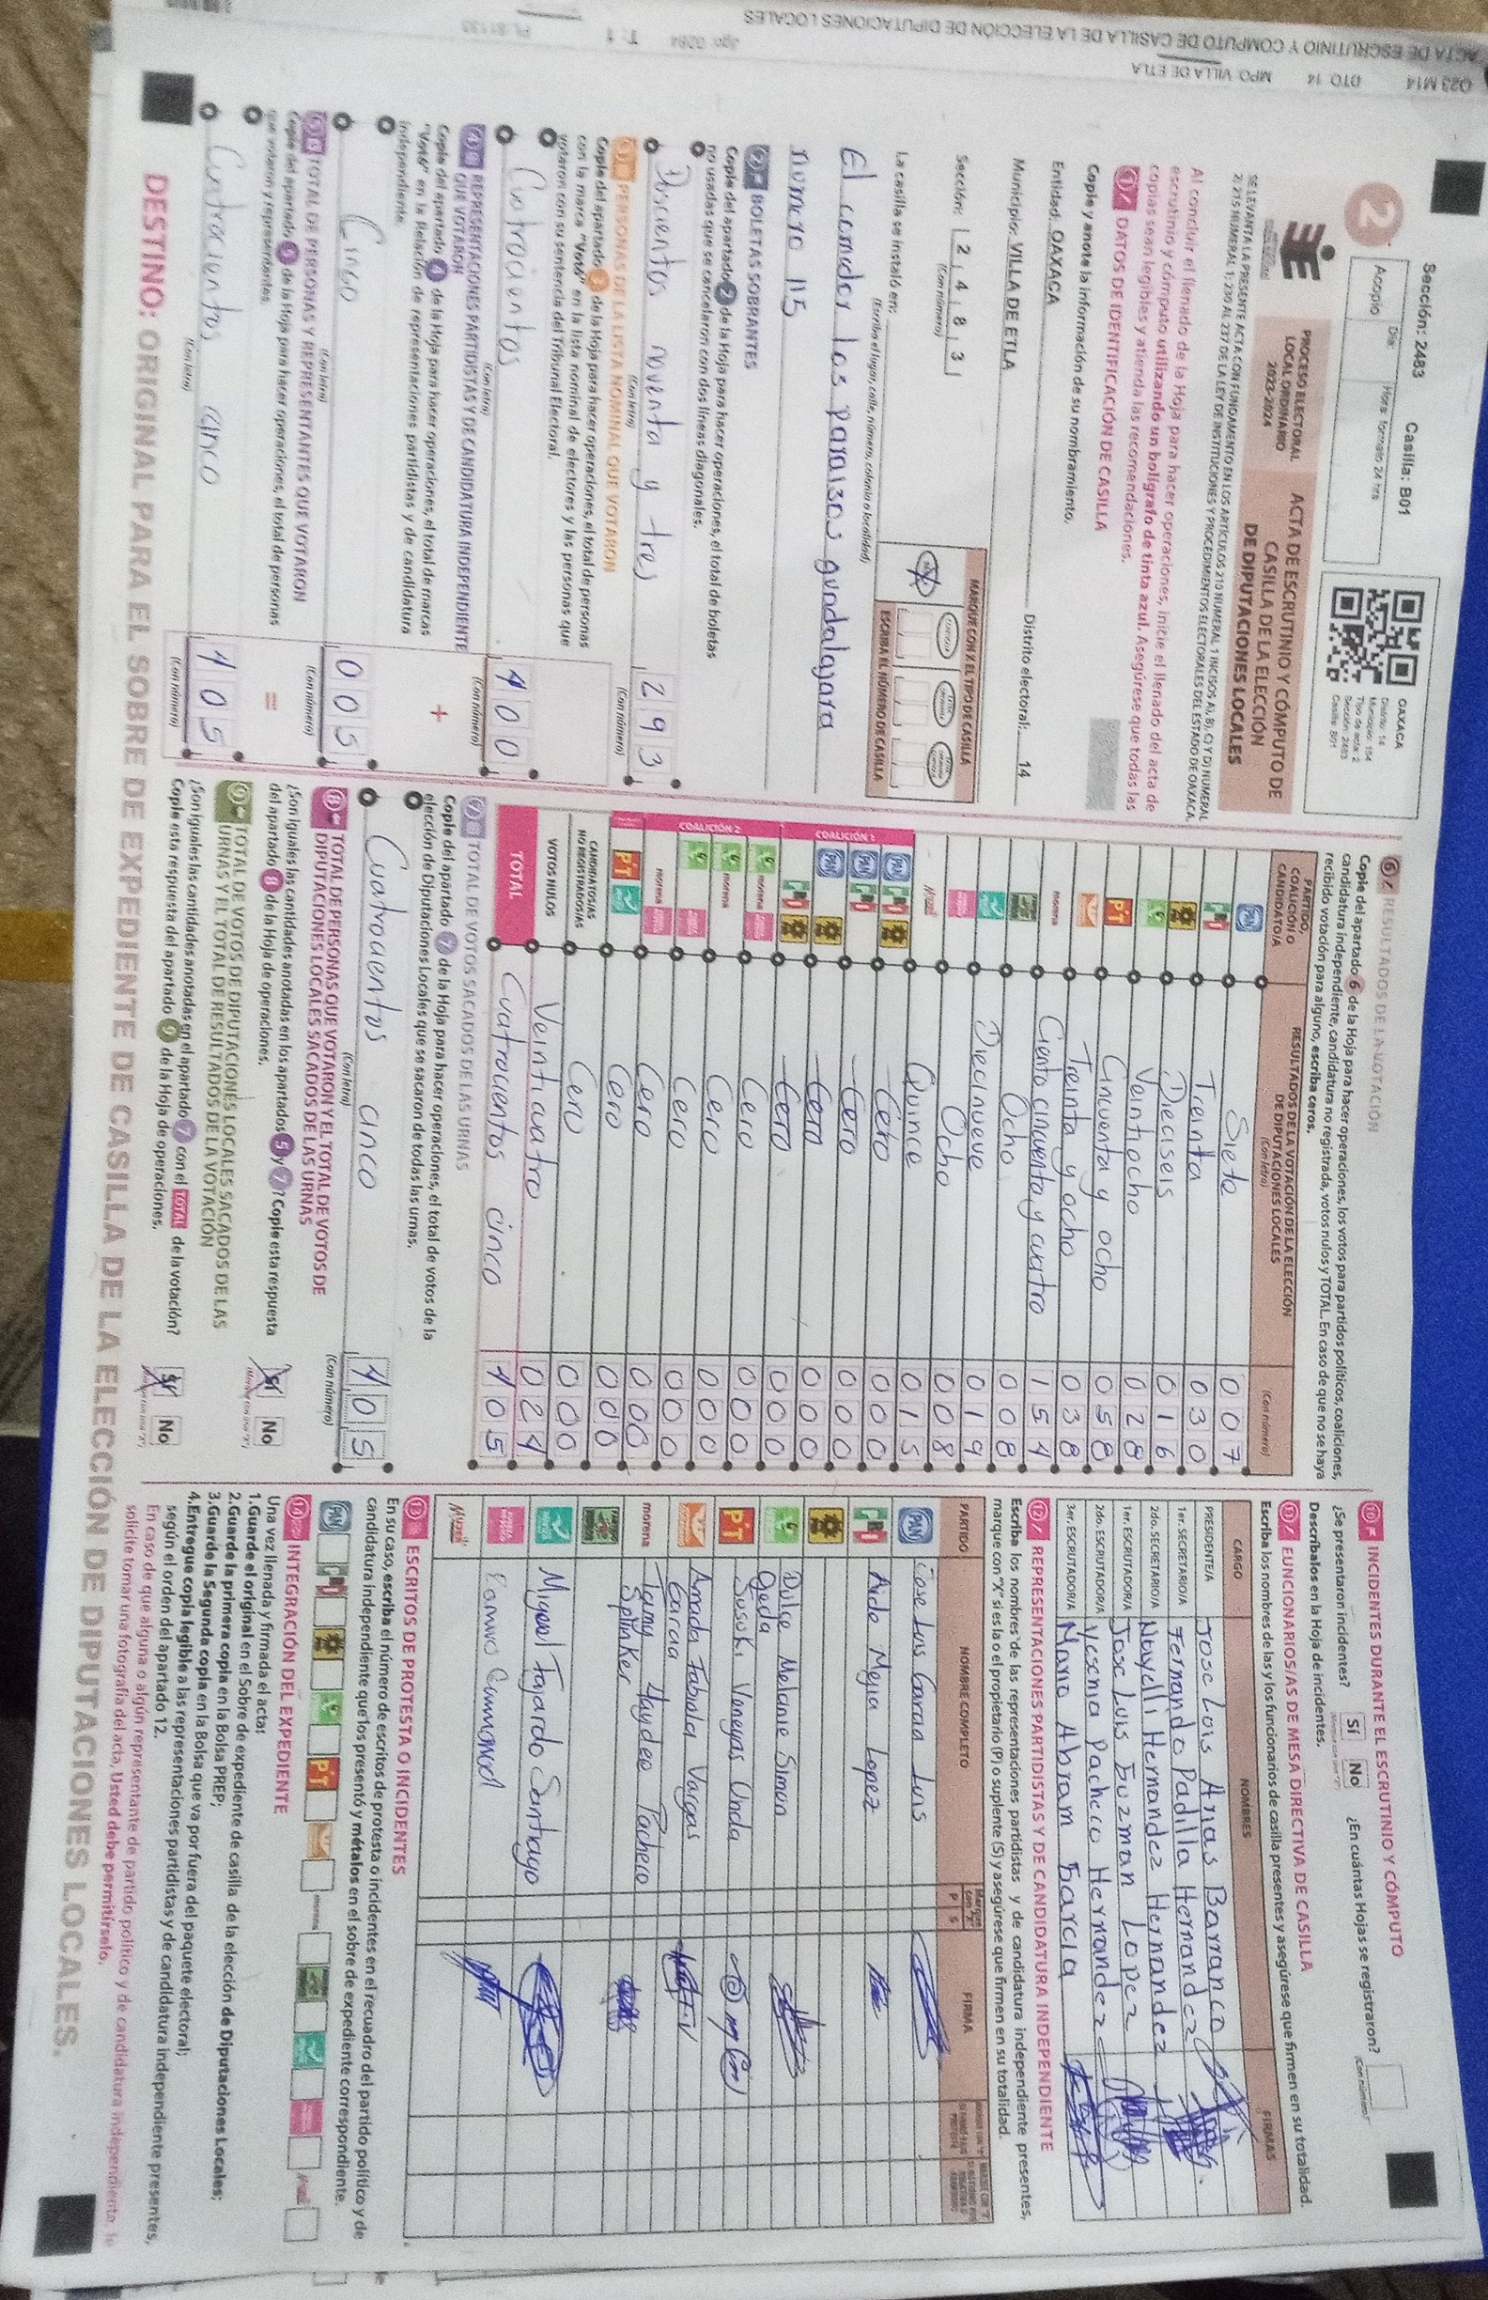 ACTA DE ESCRUTINIO Y CÓMPUTO DE CASILLA DE LA ELECCIÓN DE DIPUTACIONES LOCALES
MPO. VILLA DE ETLA
DTO 14
Sección: 2483 Casilla: B01
2
Acopio
Día:
Hora: formato 24 hrs
OAXACA
Distrito: 14
Municipio: 154
Tipo de acta: 2
Sección: 2483
Casilla: B01
PROCESO ELECTORAL
LOCAL ORDINARIO
2023-2024
ACTA DE ESCRUTINIO Y CÓMPUTO DE
CASILLA DE LA ELECCIÓN
DE DIPUTACIONES LOCALES
SE LEVANTA LA PRESENTE ACTA CON FUNDAMENTO EN LOS ARTÍCULOS 210 NUMERAL 1 INCISOS A), B), C) Y D) NUMERAL
2; 215 NUMERAL 1; 230 AL 237 DE LA LEY DE INSTITUCIONES Y PROCEDIMIENTOS ELECTORALES DEL ESTADO DE OAXACA.
Al concluir el llenado de la Hoja para hacer operaciones, inicie el llenado del acta de
escrutinio y cómputo utilizando un bolígrafo de tinta azul. Asegúrese que todas las
copias sean legibles y atienda las recomendaciones.
1 DATOS DE IDENTIFICACIÓN DE CASILLA
Copie y anote la información de su nombramiento.
Entidad: OAXACA
Municipio: VILLA DE ETLA Distrito electoral: 14
Sección: 2 4 8 3
(Con número)
MARQUE CON X EL TIPO DE CASILLA
ESCRIBA EL NÚMERO DE CASILLA
La casilla se instaló en:
(Escriba el lugar, calle, número, colonia o localidad)
El comedor los paraisos guadalajara
numero 115
2 BOLETAS SOBRANTES
Copie del apartado 2 de la Hoja para hacer operaciones, el total de boletas
no usadas que se cancelaron con dos líneas diagonales.
Doscientos noventa y tres 293
(Con letra) (Con número)
3 PERSONAS DE LA LISTA NOMINAL QUE VOTARON
Copie del apartado 3 de la Hoja para hacer operaciones, el total de personas
con la marca "Votó" en la lista nominal de electores y las personas que
votaron con su sentencia del Tribunal Electoral.
Cuatrocientos 400
(Con letra) (Con número)
4 REPRESENTACIONES PARTIDISTAS Y DE CANDIDATURA INDEPENDIENTE
QUE VOTARON
Copie del apartado 4 de la Hoja para hacer operaciones, el total de marcas
"Votó" en la Relación de representaciones partidistas y de candidatura
independiente.
+
Cinco 005
(Con letra) (Con número)
5 TOTAL DE PERSONAS Y REPRESENTANTES QUE VOTARON
Copie del apartado 5 de la Hoja para hacer operaciones, el total de personas
que votaron y representantes.
=
Cuatrocientos cinco 405
(Con letra) (Con número)
6 RESULTADOS DE LA VOTACIÓN
Copie del apartado 6 de la Hoja para hacer operaciones, los votos para partidos políticos, coaliciones,
candidatura independiente, candidatura no registrada, votos nulos y TOTAL. En caso de que no se haya
recibido votación para alguno, escriba ceros.
PARTIDO, COALICIÓN O CANDIDATO/A
RESULTADOS DE LA VOTACIÓN DE LA ELECCIÓN DE DIPUTACIONES LOCALES
(Con letra) (Con número)
PAN Siete 007
PRI Treinta 030
Dieciseis 016
Veintiocho 028
PT Cincuenta y ocho 058
Treinta y ocho 038
morena Ciento cincuenta y cuatro 154
Ocho 008
Diecinueve 019
Ocho 008
Quince 015
COALICIÓN 1
PAN PRI Cero 000
PAN PRI Cero 000
PAN Cero 000
PRI Cero 000
COALICIÓN 2
morena Cero 000
morena Cero 000
Cero 000
morena Cero 000
PT Cero 000
CANDIDATOS/AS NO REGISTRADOS/AS Cero 000
VOTOS NULOS Veinticuatro 024
TOTAL Cuatrocientos cinco 405
7 TOTAL DE VOTOS SACADOS DE LAS URNAS
Copie del apartado 7 de la Hoja para hacer operaciones, el total de votos de la
elección de Diputaciones Locales que se sacaron de todas las urnas.
Cuatrocientos cinco 405
(Con letra) (Con número)
8 TOTAL DE PERSONAS QUE VOTARON Y EL TOTAL DE VOTOS DE
DIPUTACIONES LOCALES SACADOS DE LAS URNAS
¿Son iguales las cantidades anotadas en los apartados 5 y 7? Copie esta respuesta
del apartado 8 de la Hoja de operaciones.
Sí No
9 TOTAL DE VOTOS DE DIPUTACIONES LOCALES SACADOS DE LAS
URNAS Y EL TOTAL DE RESULTADOS DE LA VOTACIÓN
¿Son iguales las cantidades anotadas en el apartado 7 con el TOTAL de la votación?
Copie esta respuesta del apartado 9 de la Hoja de operaciones.
Sí No
10 INCIDENTES DURANTE EL ESCRUTINIO Y CÓMPUTO
¿Se presentaron incidentes? Sí No ¿En cuántas Hojas se registraron?
(Con número)
Descríbalos en la Hoja de incidentes.
11 FUNCIONARIOS/AS DE MESA DIRECTIVA DE CASILLA
Escriba los nombres de las y los funcionarios de casilla presentes y asegúrese que firmen en su totalidad.
CARGO NOMBRES FIRMAS
PRESIDENTE/A Jose Luis Arias Barranco
1er. SECRETARIO/A Fernando Padilla Hernandez
2do. SECRETARIO/A Nayelli Hernandez Hernandez
1er. ESCRUTADOR/A Jose Luis Guzman Lopez
2do. ESCRUTADOR/A Yesenia Pacheco Hernandez
3er. ESCRUTADOR/A Mario Abram Garcia
12 REPRESENTACIONES PARTIDISTAS Y DE CANDIDATURA INDEPENDIENTE
Escriba los nombres de las representaciones partidistas y de candidatura independiente presentes,
marque con "X" si es la o el propietario (P) o suplente (S) y asegúrese que firmen en su totalidad.
PARTIDO NOMBRE COMPLETO P S FIRMA
PAN Jose Luis Garcia Luis
PRI Aide Mejia Lopez
Dulce Melanie Simon
Ojeda
PT Susuki Venegas Unda
Amada Fabiola Vargas
Garcia
morena Tamy Haydee Pacheco
Splinker
Miguel Fajardo Santiago
13 ESCRITOS DE PROTESTA O INCIDENTES
En su caso, escriba el número de escritos de protesta o incidentes en el recuadro del partido político y de
candidatura independiente que los presentó y métalos en el sobre de expediente correspondiente.
PAN PRI PT morena
14 INTEGRACIÓN DEL EXPEDIENTE
Una vez llenada y firmada el acta:
1.Guarde el original en el Sobre de expediente de casilla de la elección de Diputaciones Locales;
2.Guarde la primera copia en la Bolsa PREP;
3.Guarde la Segunda copia en la Bolsa que va por fuera del paquete electoral;
4.Entregue copia legible a las representaciones partidistas y de candidatura independiente presentes,
según el orden del apartado 12.
En caso de que alguna o algún representante de partido político y de candidatura independiente, le
solicite tomar una fotografía del acta, Usted debe permitírselo.
DESTINO: ORIGINAL PARA EL SOBRE DE EXPEDIENTE DE CASILLA DE LA ELECCIÓN DE DIPUTACIONES LOCALES.